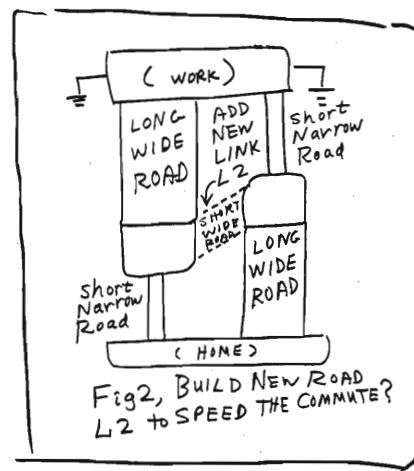 ( WORK )
LONG
WIDE
ROAD
ADD
NEW
LINK
L2
short
Narrow
Road
SHORT
WIDE
ROAD
LONG
WIDE
ROAD
short
Narrow
Road
( HOME )
Fig2, BUILD NEW ROAD
L2 to SPEED THE COMMUTE?